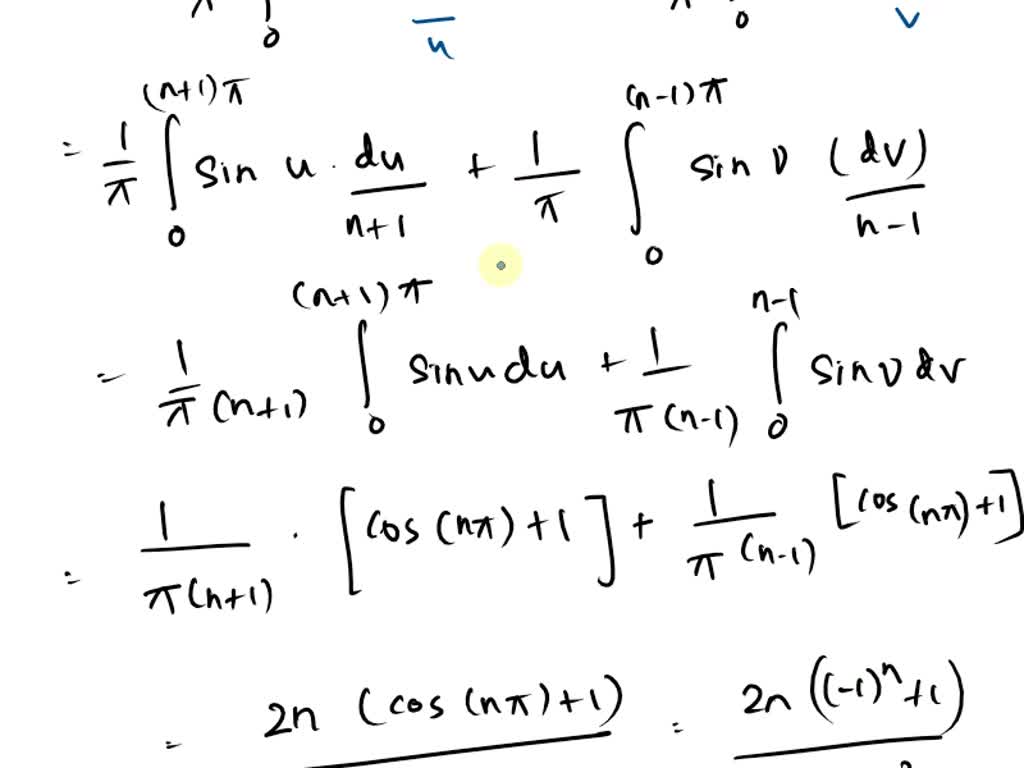 π 0 u π 0 v
= 1/π ∫₀^{(n+1)π} Sin u · du/(n+1) + 1/π ∫₀^{(n-1)π} Sin v (dv)/(n-1)
= 1/π(n+1) ∫₀^{(n+1)π} Sin u du + 1/π(n-1) ∫₀^{n-1} Sin v dv
= 1/π(n+1) · [cos (nπ) + 1] + 1/π(n-1) [cos (nπ) + 1]
= 2n (cos (nπ) + 1) = 2n ((-1)^n + 1)